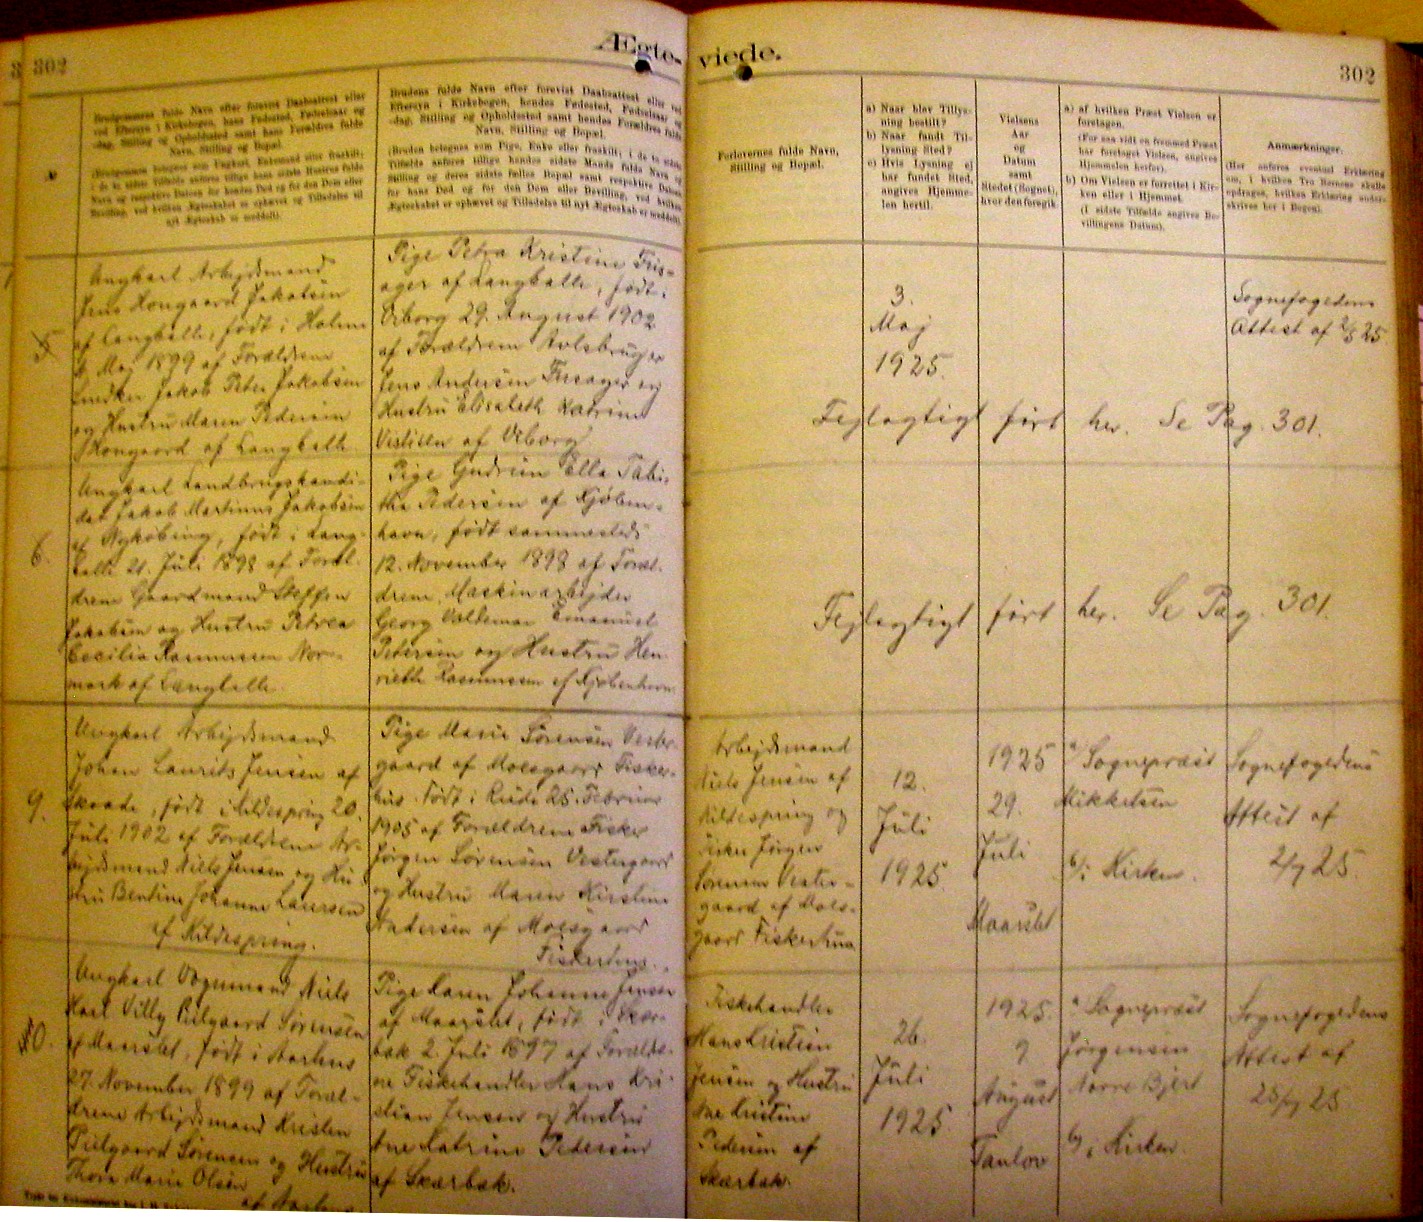 302
Ægte-
viede.
302
Brudgommens fulde Navn efter forevist Daabsattest eller
ved Eftersyn i Kirkebogen, hans Fødested, Fødselsaar og
-dag, Stilling og Opholdssted samt hans Forældres fulde
Navn, Stilling og Bopæl.
(Brudgommen betegnes som Ungkarl, Enkemand eller fraskilt;
i de to sidste Tilfælde anføres tillige hans sidste Hustrus fulde
Navn og respektive Datoen for hendes Død og for den Dom eller
Bevilling, ved hvilken Ægteskabet er ophævet og Tilladelse til
nyt Ægteskab er meddelt).
Brudens fulde Navn efter forevist Daabsattest eller ved
Eftersyn i Kirkebogen, hendes Fødested, Fødselsaar og
-dag, Stilling og Opholdssted samt hendes Forældres fulde
Navn, Stilling og Bopæl.
(Bruden betegnes som Pige, Enke eller fraskilt; i de to sidste
Tilfælde anføres tillige hendes sidste Mands fulde Navn og
Stilling og deres sidste fælles Bopæl samt respektive Datoen
for hans Død og for den Dom eller Bevilling, ved hvilken
Ægteskabet er ophævet og Tilladelse til nyt Ægteskab er meddelt).
Forlovernes fulde Navn,
Stilling og Bopæl.
a) Naar blev Tillys-
ning bestilt?
b) Naar fandt Til-
lysning Sted?
c) Hvis Lysning ej
har fundet Sted,
angives Hjemme-
len hertil.
Vielsens
Aar
og
Datum
samt
Stedet (Sognet),
hvor den foregik.
a) af hvilken Præst Vielsen er
foretagen.
(For saa vidt en fremmed Præst
har foretaget Vielsen, angives
Hjemmelen herfor).
b) Om Vielsen er forrettet i Kir-
ken eller i Hjemmet.
(I sidste Tilfælde angives Be-
villingens Datum).
Anmærkninger.
(Her anføres eventuel Erklæring
om, i hvilken Tro Børnene skulle
opdrages, hvilken Erklæring under-
skrives her i Bogen).
5
Ungkarl Arbejdsmand
Jens Hougaard Jakobsen
af Langballe, født i Holme
Maj 1899 af Forældrene
Smeden Jakob Peter Jakobsen
og Hustru Maren Pedersen
Hougaard af Langballe
Pige Petra Kristine Fris-
ager af Langballe, født i
Viborg 29. August 1902
af Forældrene Avlsbruger
Jens Andersen Frisager og
Hustru Elisabeth Katrine
Vistisen af Viborg
3.
Maj
1925.
Sognefogedens
Attest af 2/5 25.
Fejlagtigt ført her. Se Pag. 301.
6.
Ungkarl Landbrugskandi-
dat Jakob Martinus Jakobsen
af Nykøbing, født i Lang-
balle 21. Juli 1898 af Foræl-
drene Gaardmand Steffen
Jakobsen og Hustru Petrea
Cecilie Rasmussen Nor-
mark af Langballe.
Pige Gudrun Ella Tabi-
tha Pedersen af Kjøben-
havn, født sammesteds
12. November 1898 af Foræl-
drene Maskinarbejder
Georg Valdemar Emanuel
Petersen og Hustru Hen-
riette Rasmussen af Kjøbenhavn.
Fejlagtigt ført her. Se Pag. 301.
9.
Ungkarl Arbejdsmand
Johan Laurits Jensen af
Skaade, født i Kildespring 20.
Juli 1902 af Forældrene Ar-
bejdsmand Niels Jensen og Hu-
stru Bentine Johanne Laursen
af Kildespring.
Pige Marie Sørensen Vester-
gaard af Moesgaard Fisker-
hus. Født i Rude 25. Februar
1905 af Forældrene Fisker
Jørgen Sørensen Vestergaard
og Hustru Maren Kirstine
Andersen af Moesgaard
Fiskerhus.
Arbejdsmand
Niels Jensen af
Kildespring og
Fisker Jørgen
Sørensen Vester-
gaard af Moes-
gaard Fiskerhus
12.
Juli
1925.
1925
29.
Juli
Maarslet
a/ Sognepræst
Mikkelsen
b/ i Kirken.
Sognefogedens
Attest af
2/7 25.
10.
Ungkarl Vognmand Niels
Karl Villy Pielgaard Sørensen
af Maarslet, født i Aarhus
27. November 1899 af Foræl-
drene Arbejdsmand Kristen
Pielgaard Sørensen og Hustru
Thora Marie Olsen
af Aarhus
Pige Karen Johanne Jensen
af Maarslet, født i Skær-
bæk 2. Juli 1897 af Forældre-
ne Fiskehandler Hans Kri-
stian Jensen og Hustru
Ane Katrine Pedersen
af Skærbæk.
Fiskehandler
Hans Kristian
Jensen og Hustru
Ane Kristine
Pedersen af
Skærbæk.
26.
Juli
1925
1925.
9.
August
Taulov
a Sognepræst
Jørgensen
Nørre Bjert
b/ i Kirken.
Sognefogedens
Attest af
25/7 25.